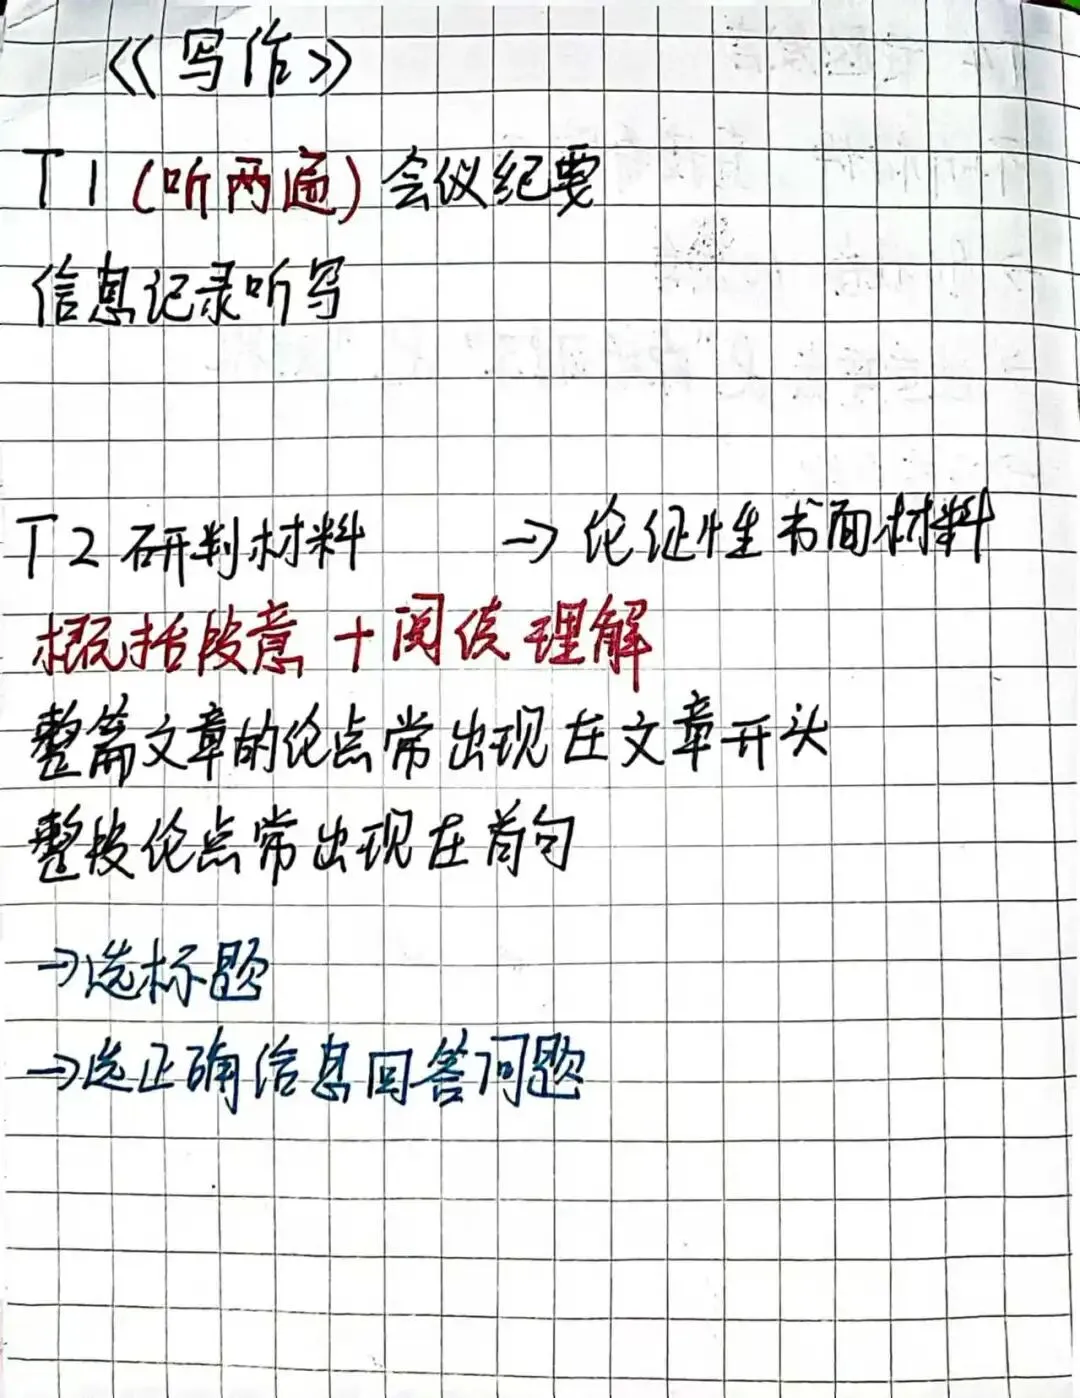 《写作》
T1(听两遍)会议纪要
信息记录听写
T2 研判材料 → 论证性书面材料
概括段意+阅读理解
整篇文章的论点常出现在文章开头
整段论点常出现在首句
→选标题
→选正确信息回答问题